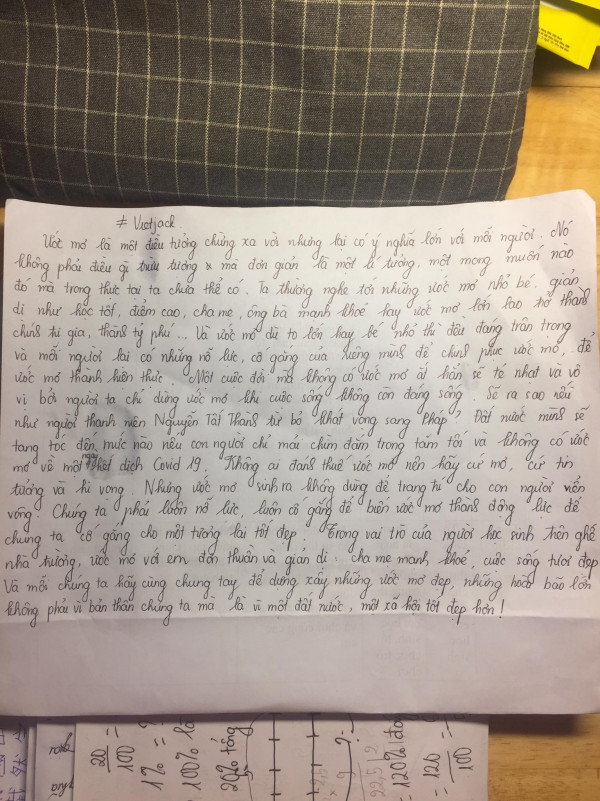 # Vietjack
Ước mơ là một điều tưởng chừng xa vời nhưng lại có ý nghĩa lớn với mỗi người. Nó
không phải điều gì trừu tượng mà đơn giản là một lí tưởng, một mong muốn nào
đó mà trong thực tại ta chưa thể có. Ta thường nghe tới những ước mơ nhỏ bé, giản
dị như học tốt, điểm cao, cha mẹ, ông bà mạnh khoẻ hay ước mơ lớn lao trở thành
chính trị gia, thành tỷ phú... Và ước mơ dù to lớn hay bé nhỏ thì đều đáng trân trọng
và mỗi người lại có những nỗ lực, cố gắng của riêng mình để chinh phục ước mơ, để
ước mơ thành hiện thực. Một cuộc đời mà không có ước mơ ắt hẳn sẽ tẻ nhạt và vô
vị bởi người ta chỉ dừng ước mơ khi cuộc sống không còn đáng sống. Sẽ ra sao nếu
như người thanh niên Nguyễn Tất Thành từ bỏ khát vọng sang Pháp? Đất nước mình sẽ
tang tóc đến mức nào nếu con người chỉ mải chìm đắm trong tăm tối và không có ước
mơ về một ngày hết dịch Covid 19. Không ai đánh thuế ước mơ nên hãy cứ mơ, cứ tin
tưởng và hi vọng. Nhưng ước mơ sinh ra không dùng để trang trí cho con người viển
vông. Chúng ta phải luôn nỗ lực, luôn cố gắng để biến ước mơ thành động lực để
chúng ta cố gắng cho một tương lai tốt đẹp. Trong vai trò của người học sinh trên ghế
nhà trường, ước mơ với em đơn thuần và giản dị: cha mẹ mạnh khoẻ, cuộc sống tươi đẹp
Và mỗi chúng ta hãy cùng chung tay, để dựng xây những ước mơ đẹp, những hoài bão lớn
không phải vì bản thân chúng ta mà là vì một đất nước, một xã hội tốt đẹp hơn!
20/100 =
1% = ?
100% là
20% tổng
22,5 | 2
= 120% | đo
= 120/100 =